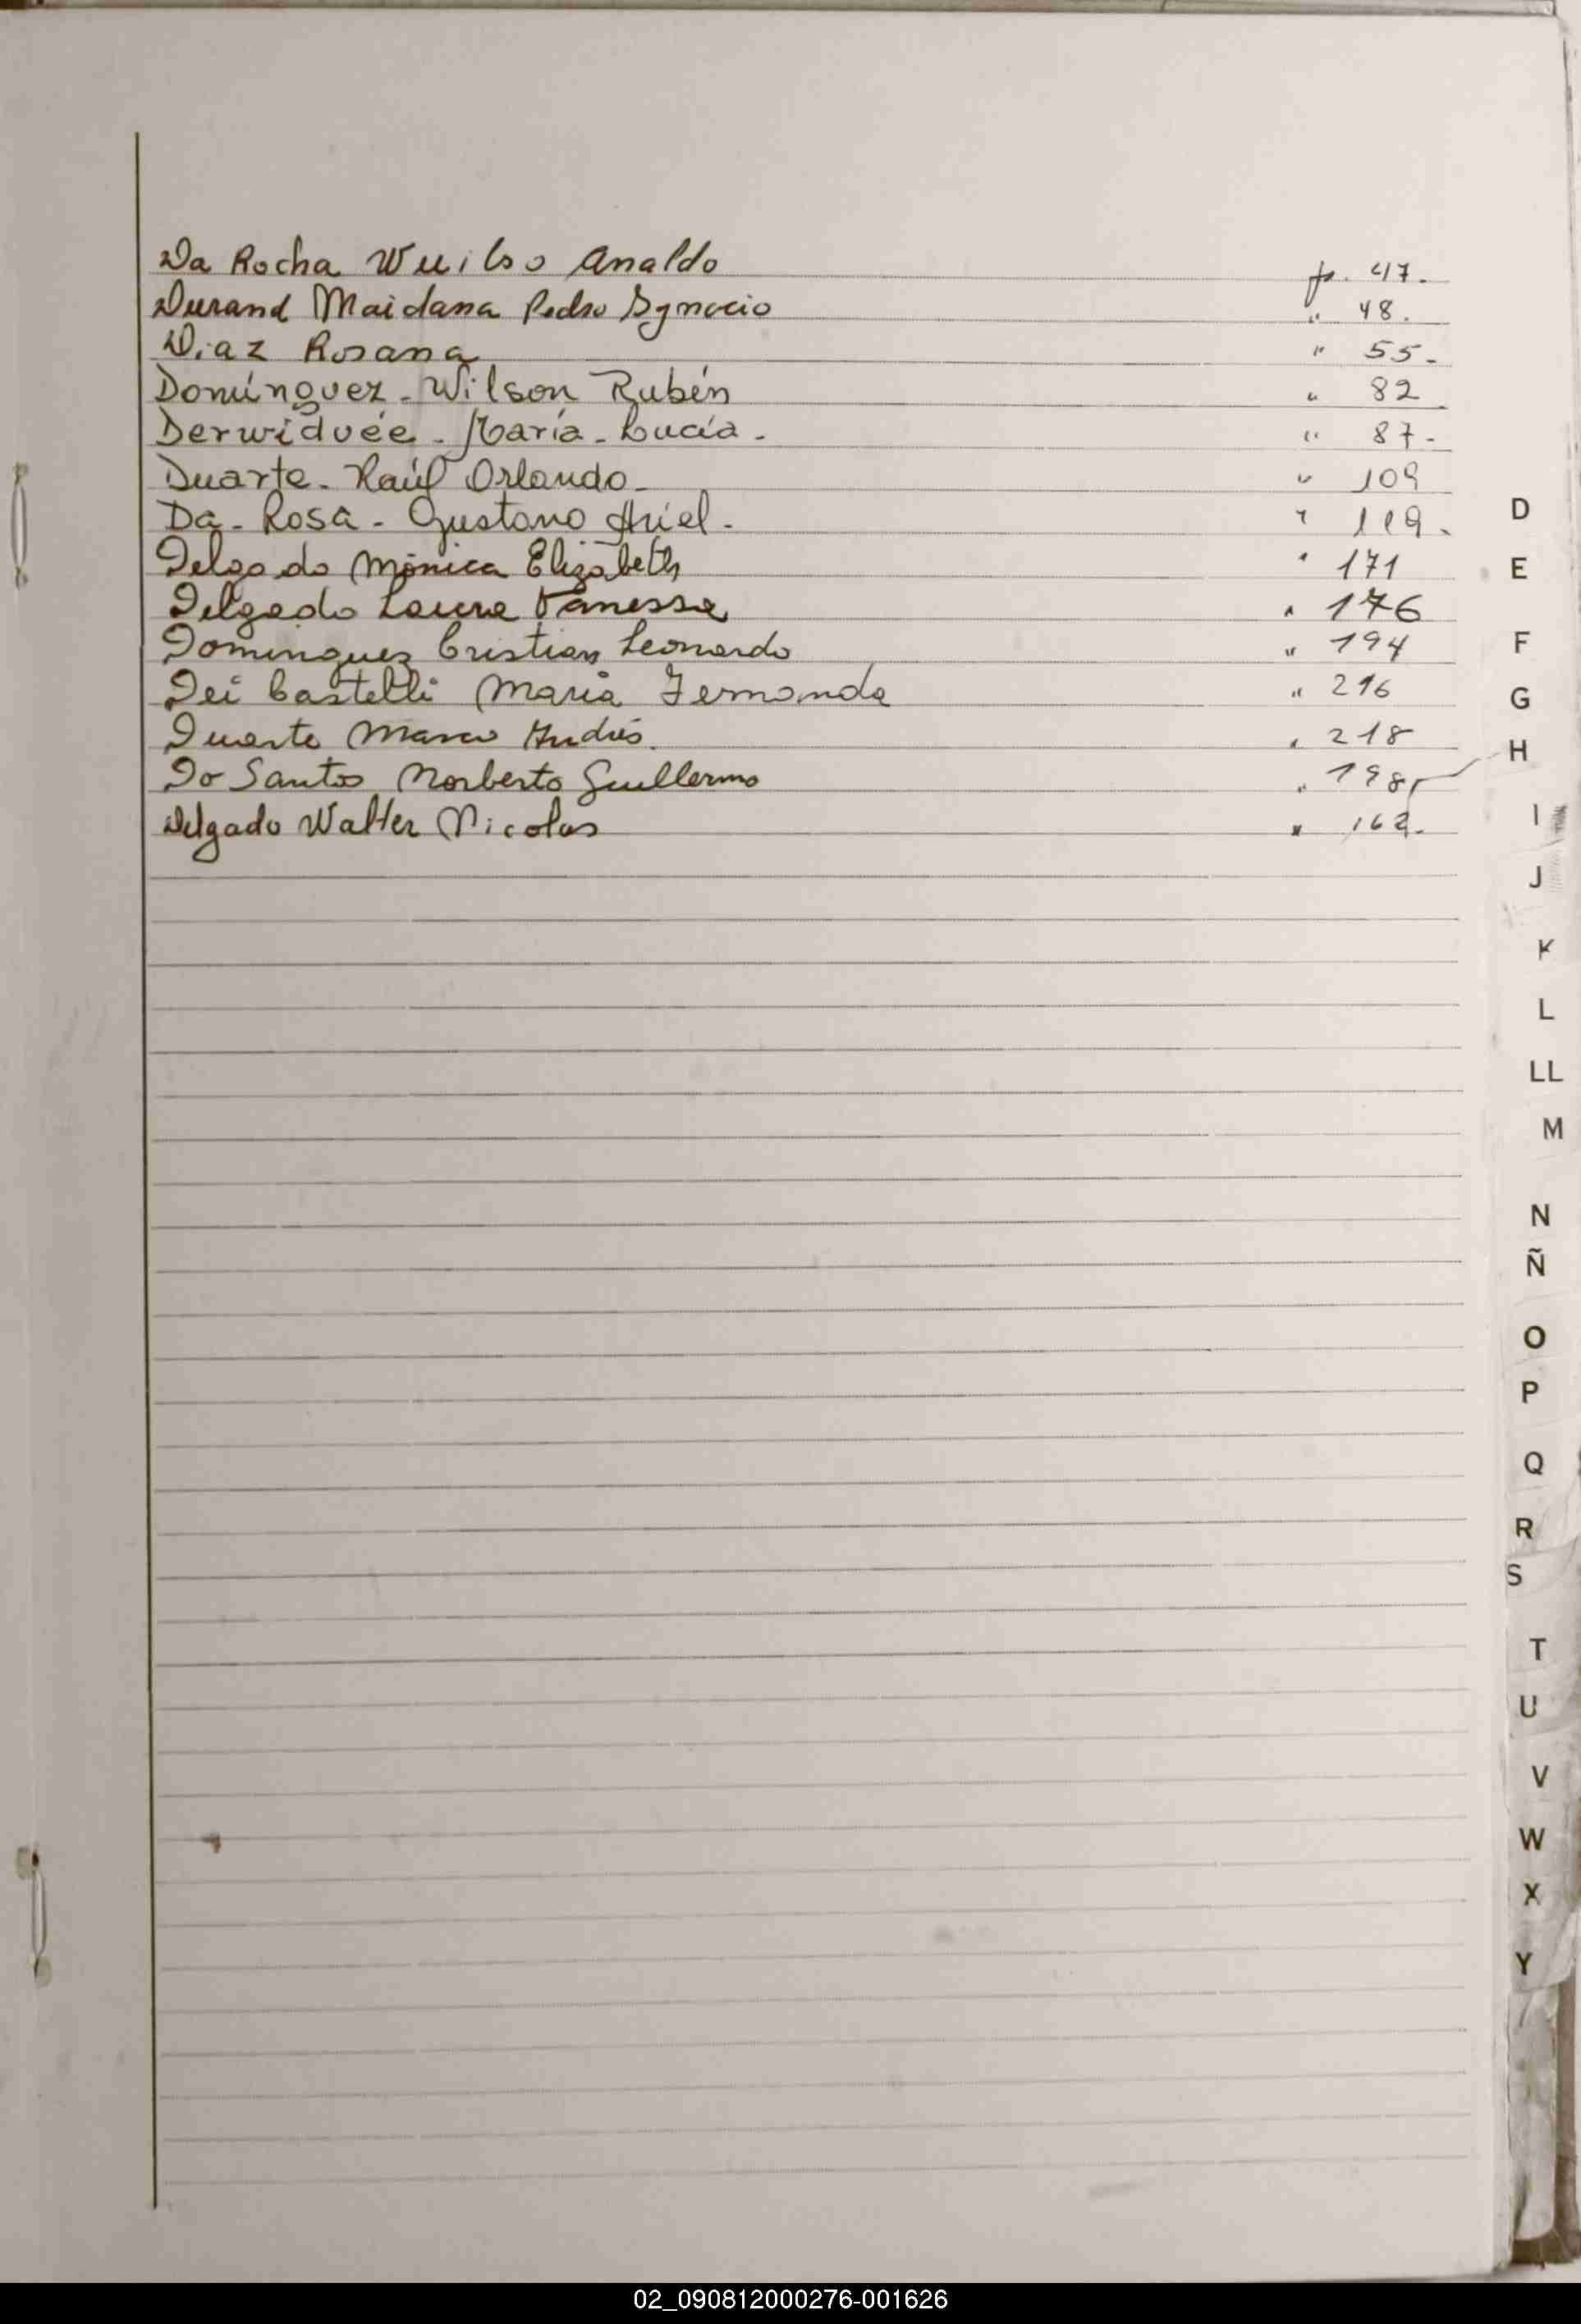 Da Rocha Wuilso Analdo fs. 47.
Durand Maidana Pedro Ygnacio " 48.
Diaz Rosana " 55-
Domínguez - Wilson Rubén " 82
Derwiduée - María - Lucía - " 87-
Duarte - Raúl Orlando - " 109
Da - Rosa - Gustavo Ariel - " 119.
Delgado Mónica Elizabeth " 171
Delgado Laura Vanessa " 176
Dominguez Cristian Leonardo " 194
Dei Castelli Maria Fernanda " 216
Duarte Marco Andrés. " 218
Do Santos Norberto Guillermo " 198
Delgado Walter Nicolas " 162.
D
E
F
G
H
I
J
K
L
LL
M
N
Ñ
O
P
Q
R
S
T
U
V
W
X
Y
02_090812000276-001626